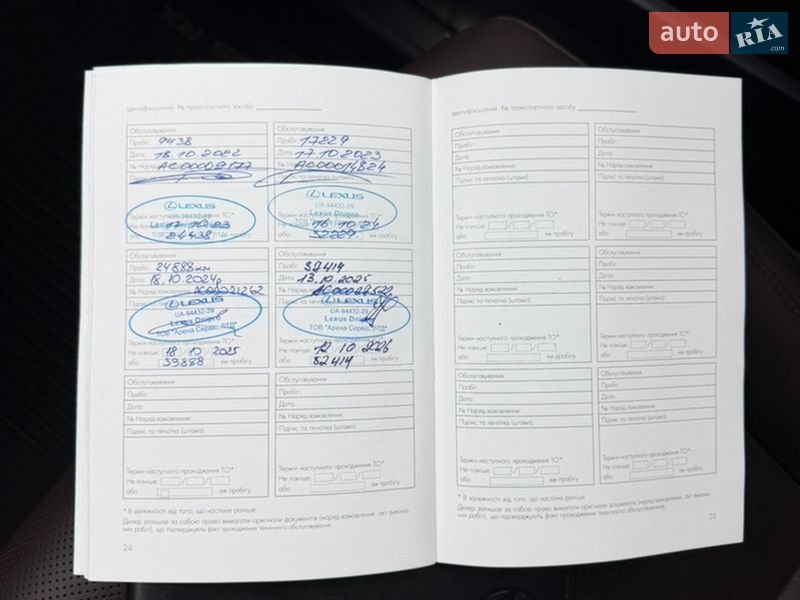 auto RIA .com
Ідентифікаційний № транспортного засобу
Обслуговування
Пробіг: 9438
Дата: 18.10.2022
№ Наряд-замовлення: АС00002577
LEXUS
UA-94432-29
Термін наступного проходження ТО*:
Не пізніше:
24438 км пробігу
Обслуговування
Пробіг: 17229
Дата: 17.10.2023
№ Наряд-замовлення: АС00014824
Підпис та печатка (штамп):
LEXUS
UA-94432-29
Lexus Dnipro
Термін наступного проходження ТО*:
Не пізніше: 16 10 24
або 32229 км пробігу
Обслуговування
Пробіг: 24888км
Дата: 18.10.2024р
№ Наряд-замовлення:
LEXUS
UA-94432-29
Lexus Dnipro
ТОВ "Арена Сервіс, ЛТД"
Не пізніше: 18 10 2025
або 39888 км пробігу
Обслуговування
Пробіг: 37414
Дата: 13.10.2025
№ Наряд-замовлення:
LEXUS
UA-94432-29
Lexus Dnipro
ТОВ "Арена Сервіс, ЛТД"
Не пізніше: 12 10 2026
або 52414 км пробігу
Обслуговування
Пробіг:
Дата:
№ Наряд-замовлення:
Підпис та печатка (штамп):
Термін наступного проходження ТО*:
Не пізніше:
або км пробігу
Обслуговування
Пробіг:
Дата:
№ Наряд-замовлення:
Підпис та печатка (штамп):
Термін наступного проходження ТО*:
Не пізніше:
або км пробігу
* В залежності від того, що настане раніше
Дилер залишає за собою право вимагати оригінали документів (наряд-замовлення, акт викона-
них робіт), що підтверджують факт проходження технічного обслуговування.
24
Ідентифікаційний № транспортного засобу
Обслуговування
Пробіг:
Дата:
№ Наряд-замовлення:
Підпис та печатка (штамп):
Термін наступного проходження ТО*:
Не пізніше:
або км пробігу
Обслуговування
Пробіг:
Дата:
№ Наряд-замовлення:
Підпис та печатка (штамп):
Термін наступного проходження ТО*:
Не пізніше:
або км пробігу
Обслуговування
Пробіг:
Дата:
№ Наряд-замовлення:
Підпис та печатка (штамп):
Термін наступного проходження ТО*:
Не пізніше:
або км пробігу
Обслуговування
Пробіг:
Дата:
№ Наряд-замовлення:
Підпис та печатка (штамп):
Термін наступного проходження ТО*:
Не пізніше:
або км пробігу
Обслуговування
Пробіг:
Дата:
№ Наряд-замовлення:
Підпис та печатка (штамп):
Термін наступного проходження ТО*:
Не пізніше:
або км пробігу
Обслуговування
Пробіг:
Дата:
№ Наряд-замовлення:
Підпис та печатка (штамп):
Термін наступного проходження ТО*:
Не пізніше:
або км пробігу
* В залежності від того, що настане раніше
Дилер залишає за собою право вимагати оригінали документів (наряд-замовлення, акт викона-
них робіт), що підтверджують факт проходження технічного обслуговування.
25